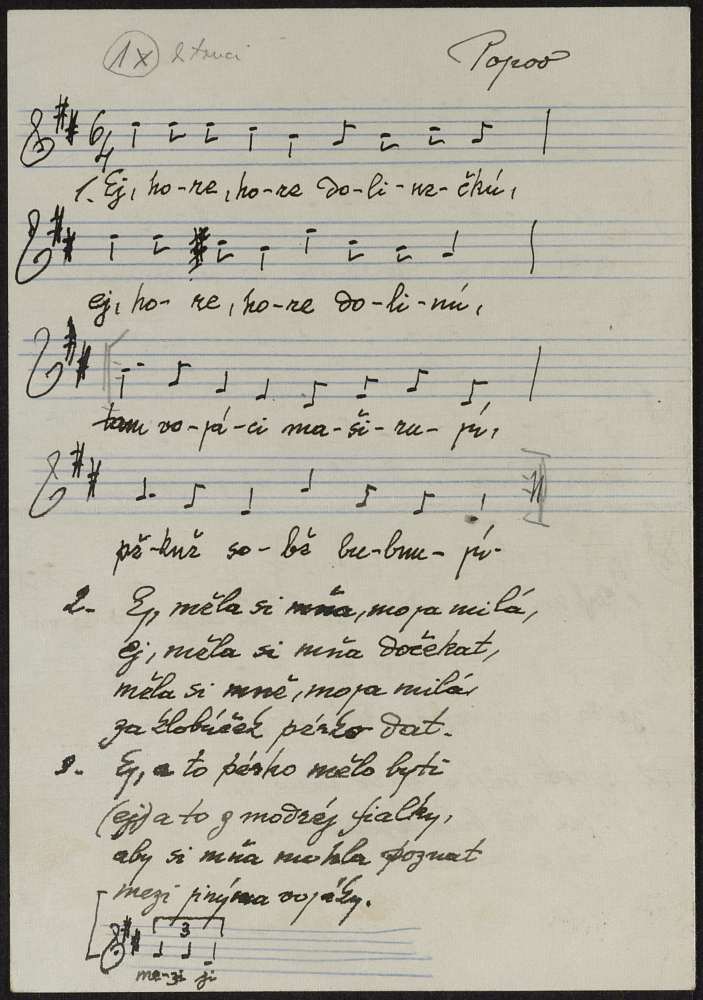 1x
Popov
6/4
1. Ej, ho-re, ho-re do-li-ne-čkú,
ej, ho-re, ho-re do-li-nú,
tam vo-já-ci ma-ši-ru-jú,
pě-kně so-bě bu-bnu-jú.
2. Ej, měla si mňa, moja milá,
ej, měla si mňa dočekat,
měla si mně, moja milá,
za klobúček pérko dat.
3. Ej, a to pérko mělo byti
(ej) a to z modréj fialky,
aby si mňa mohla poznat
mezi jinýma vojáky.
3
me-zi ji